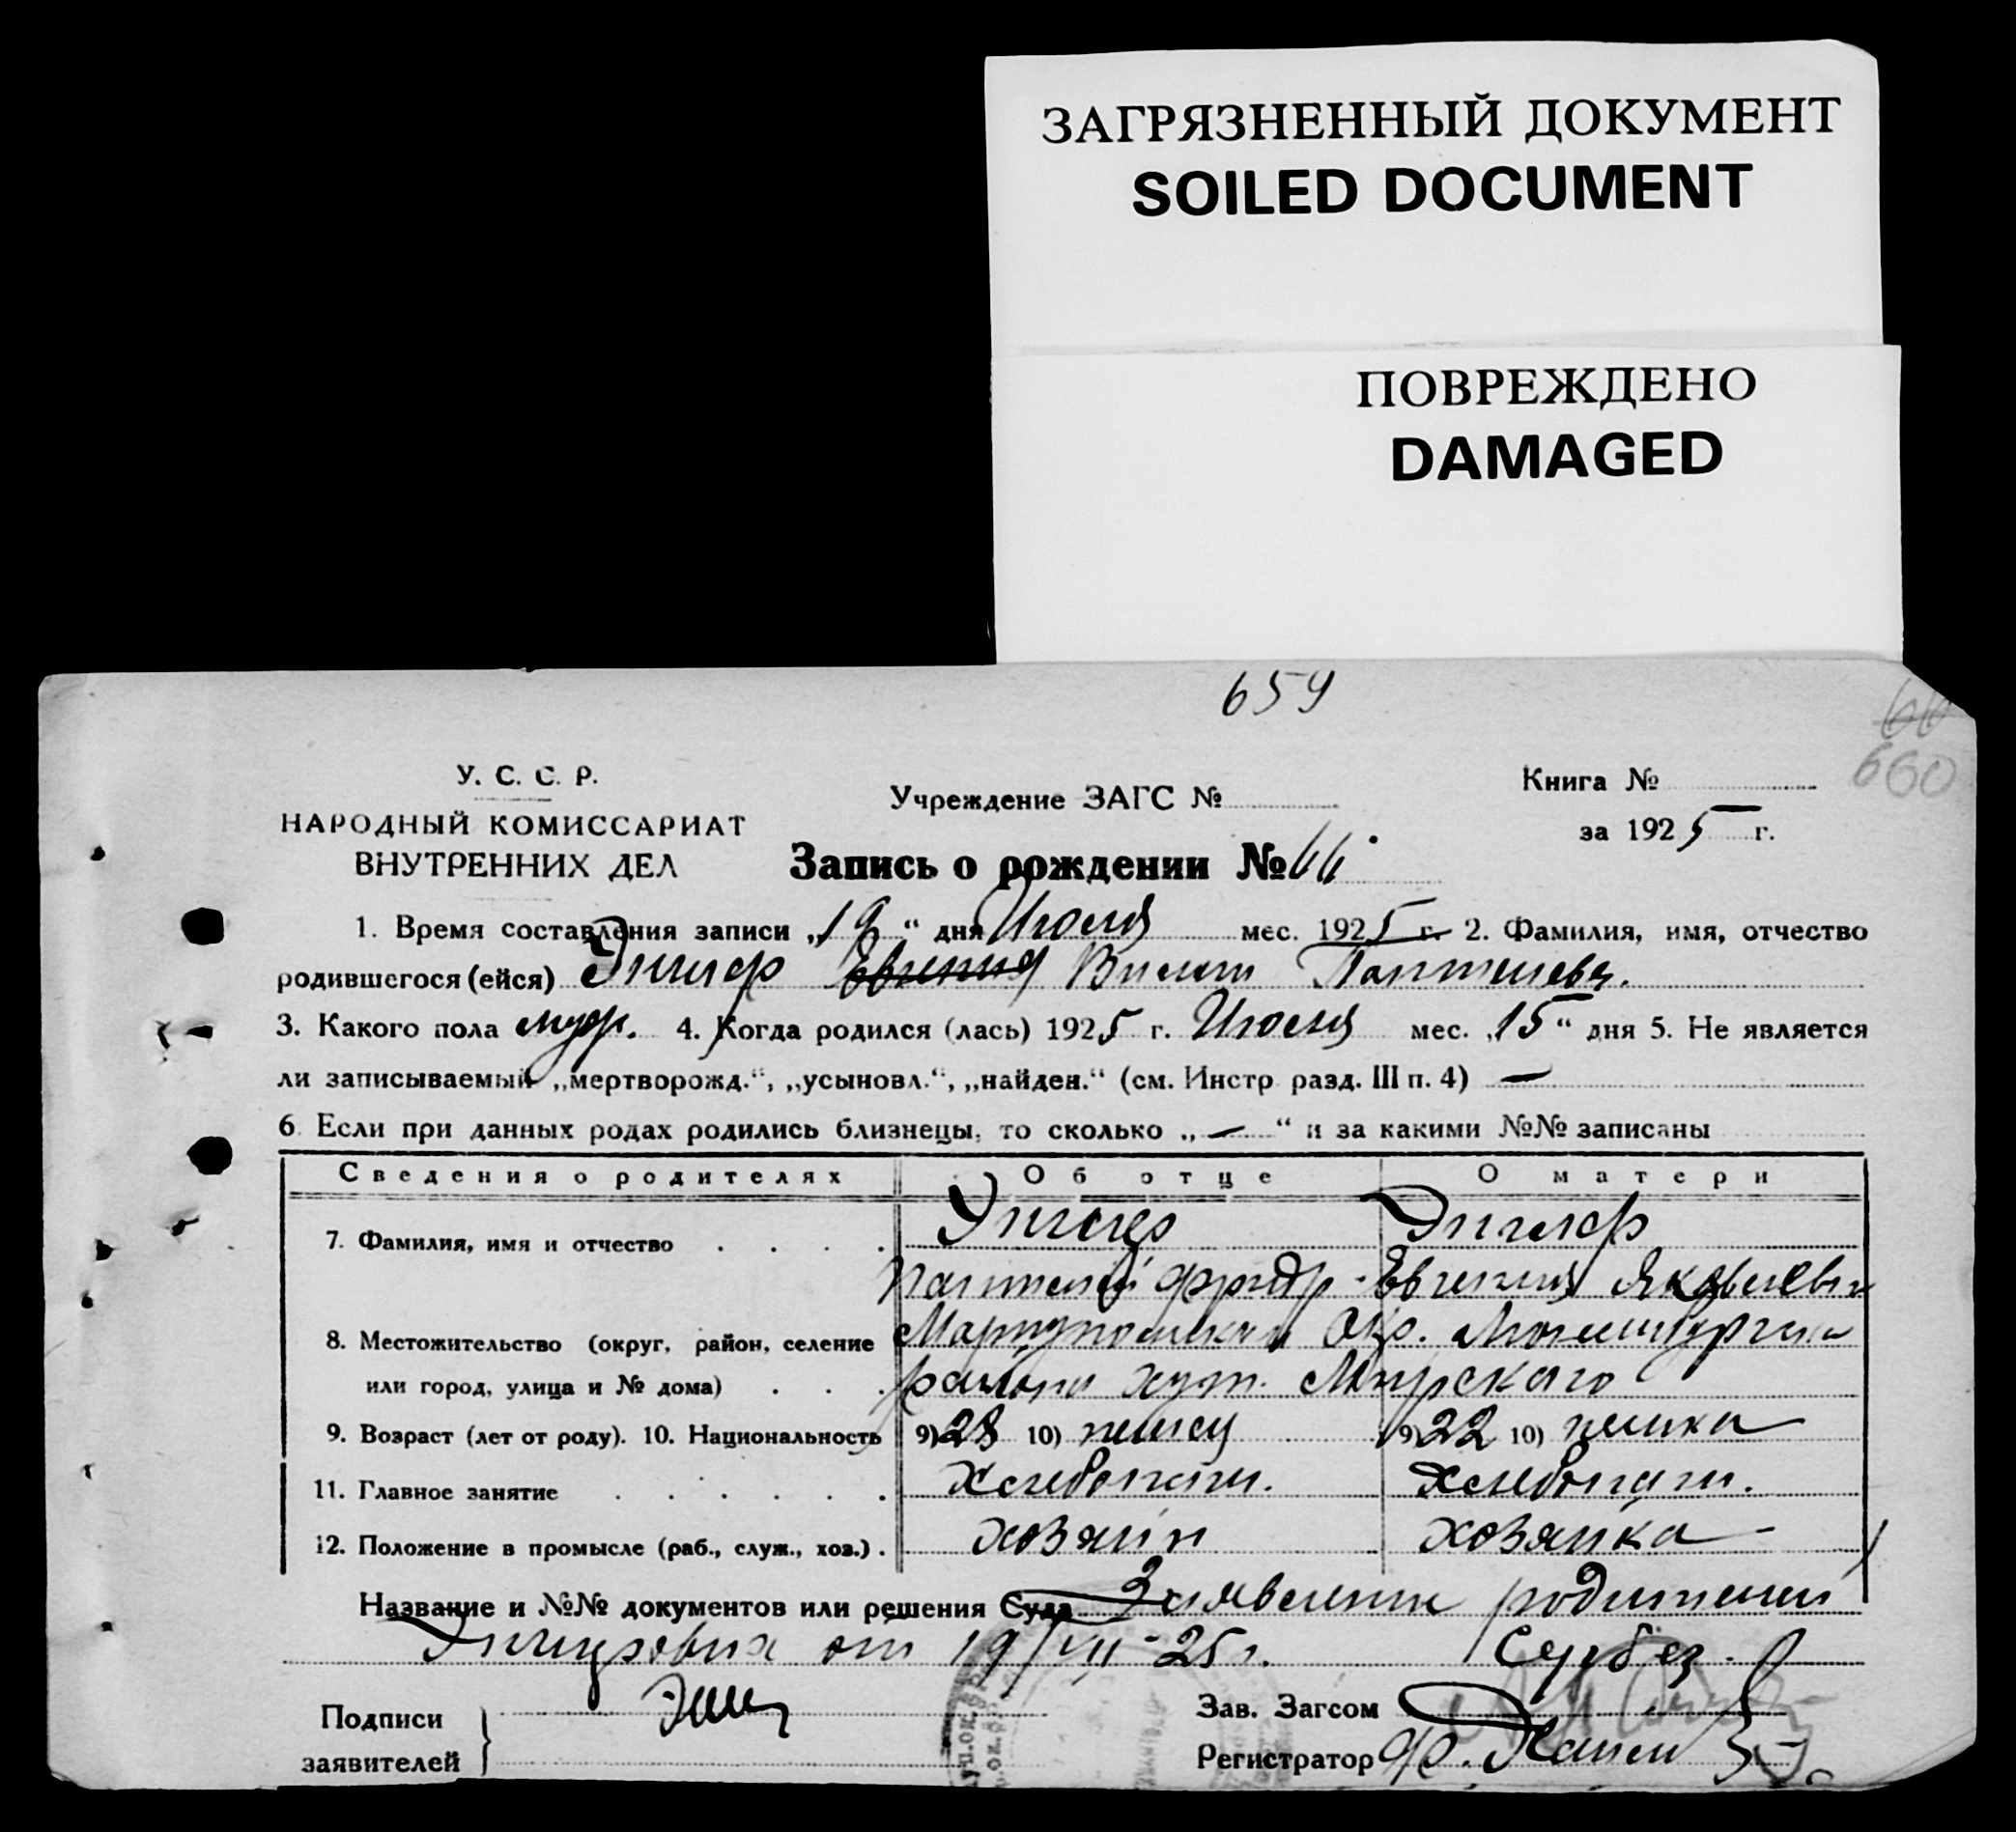 ЗАГРЯЗНЕННЫЙ ДОКУМЕНТ
SOILED DOCUMENT
ПОВРЕЖДЕНО
DAMAGED
659
660
У. С. С. Р.
НАРОДНЫЙ КОМИССАРИАТ
ВНУТРЕННИХ ДЕЛ
Учреждение ЗАГС №
Книга №
за 1925 г.
Запись о рождении № 66
1. Время составления записи „19“ дня Июля мес. 1925 г. 2. Фамилия, имя, отчество
родившегося (ейся) Евгения Вильгел Пантелеев.
3. Какого пола муж. 4. Когда родился (лась) 1925 г. Июля мес. „15“ дня 5. Не является
ли записываемый „мертворожд.“, „усыновл.“, „найден.“ (см. Инстр. разд. III п. 4) —
6. Если при данных родах родились близнецы, то сколько „—“ и за какими №№ записаны
Сведения о родителях Об отце О матери
7. Фамилия, имя и отчество . . . . Энглер Энглер
Пантелей Фридр. Евгения Яковлевн
8. Местожительство (округ, район, селение Мариупольская Окр. Люксембургск
или город, улица и № дома) . . . района хут. Мирского
9. Возраст (лет от роду). 10. Национальность 9) 28 10) немец 9) 22 10) немка
11. Главное занятие . . . . . . Хлебопаш. Хлебопаш.
12. Положение в промысле (раб., служ., хоз.) . хозяин хозяйка
Название и №№ документов или решения Суда Заявление родителей
от 19/VII-25 г.
Подписи
заявителей
Зав. Загсом
Регистратор